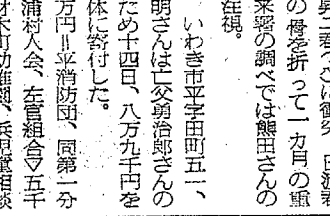 の骨を折って一カ月の重
来署の調べでは熊田さんの
注視。
いわき市平字田町五一、
明さんは亡父勇治郎さんの
ため十四日、八万九千円を
体に寄付した。
万円＝平消防団、同第一分
浦村人会、左官組合▽五千